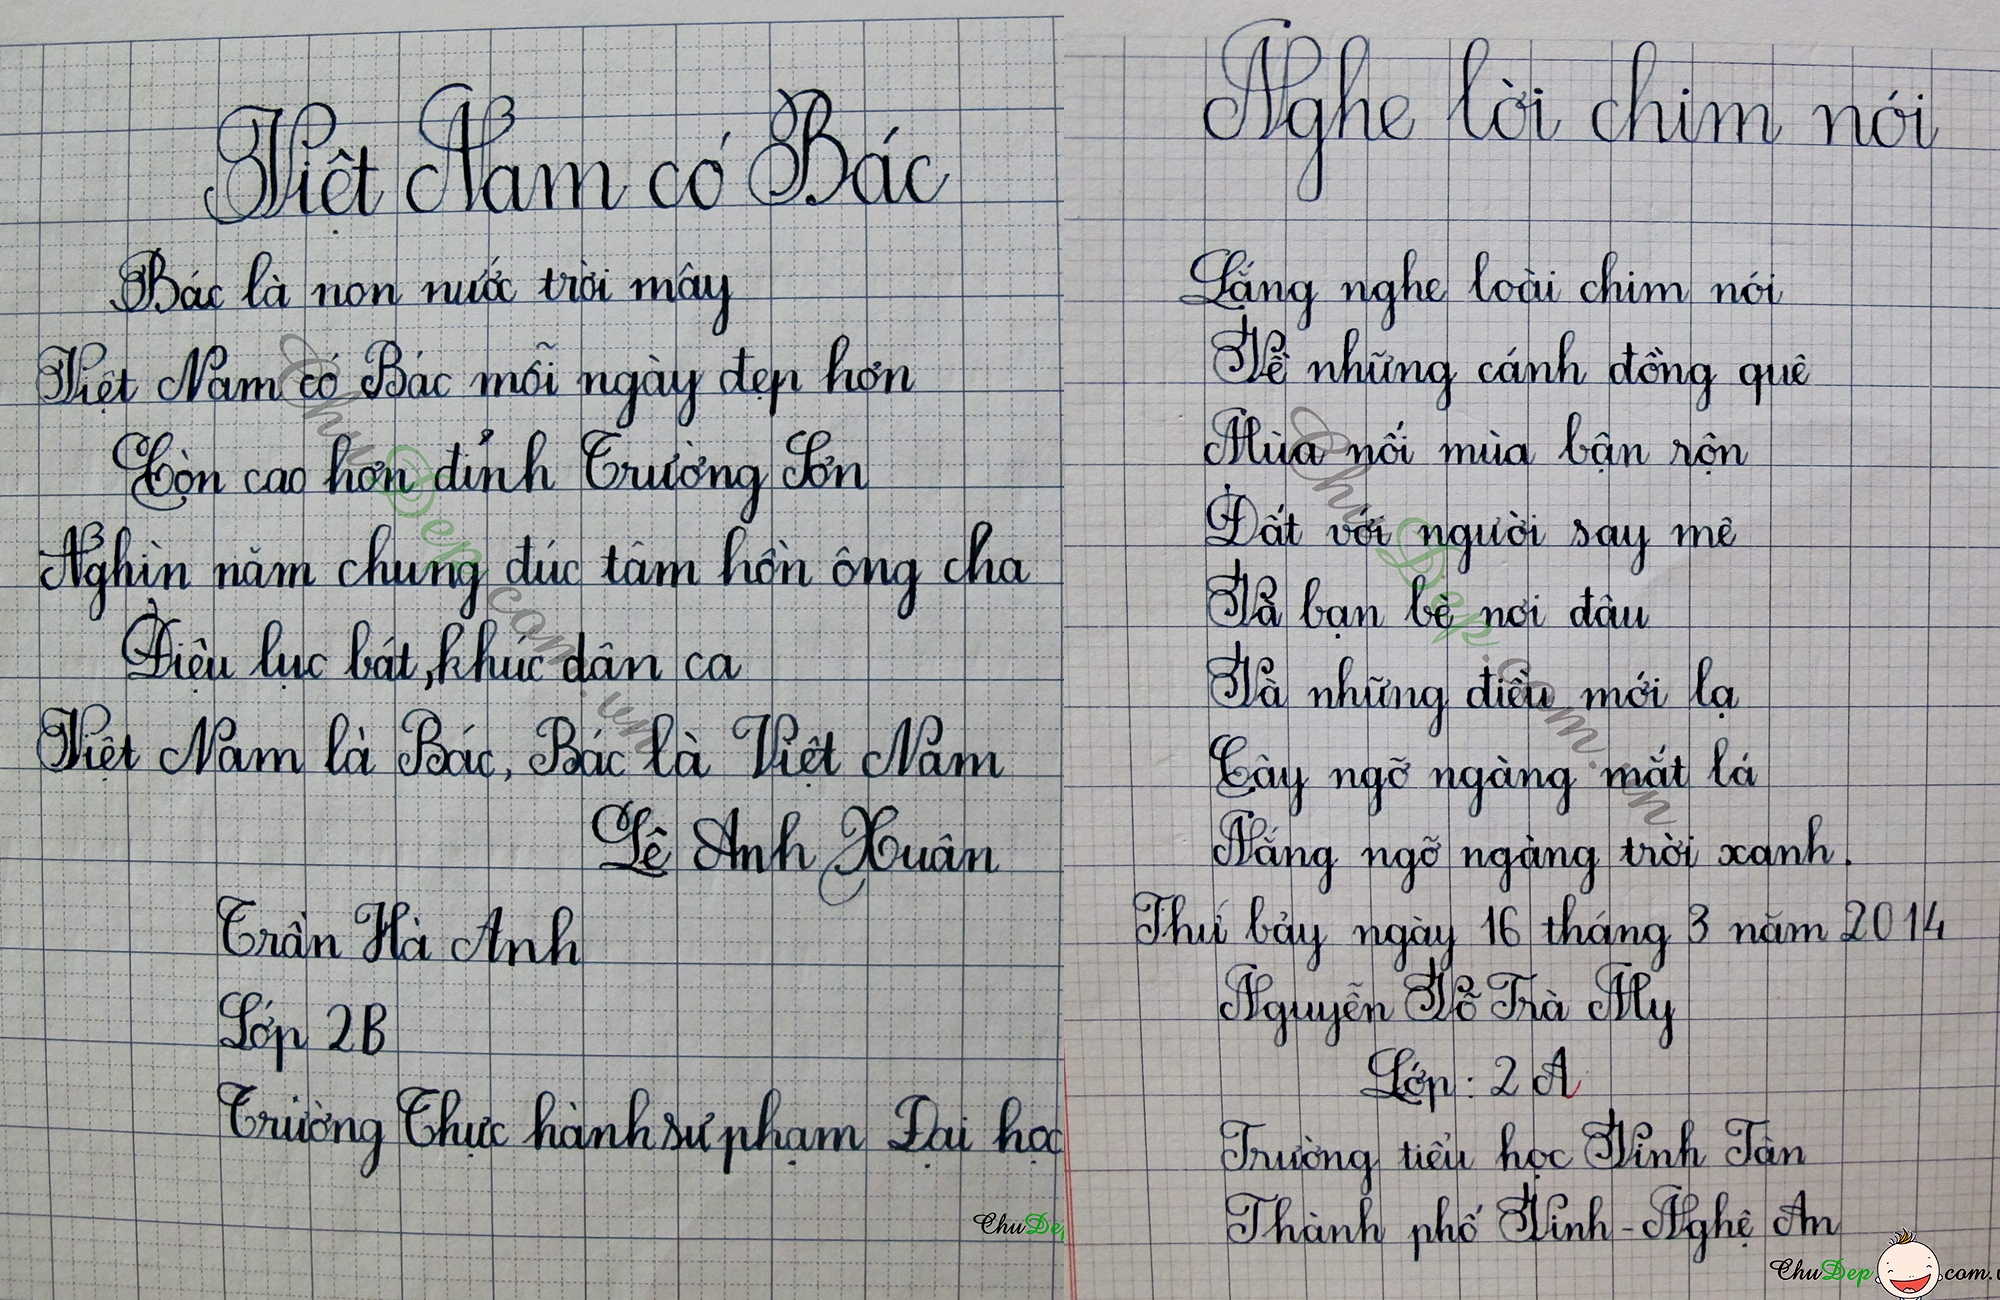 Việt Nam có Bác
Bác là non nước trời mây
Việt Nam có Bác mỗi ngày đẹp hơn
Còn cao hơn đỉnh Trường Sơn
Nghìn năm chung đúc tâm hồn ông cha
Điệu lục bát, khúc dân ca
Việt Nam là Bác, Bác là Việt Nam
Lê Anh Xuân
Trần Hà Anh
Lớp 2B
Trường Thực hành sư phạm Đại học
ChuDep.com.vn
ChuDe
Nghe lời chim nói
Lắng nghe loài chim nói
Về những cánh đồng quê
Mùa nối mùa bận rộn
Đất với người say mê
Và bạn bè nơi đâu
Và những điều mới lạ
Cây ngỡ ngàng mắt lá
Nắng ngỡ ngàng trời xanh.
Thứ bảy ngày 16 tháng 3 năm 2014
Nguyễn Võ Trà My
Lớp: 2A
Trường tiểu học Vinh Tân
Thành phố Vinh - Nghệ An
ChuDep.com.vn
ChuDep com.v